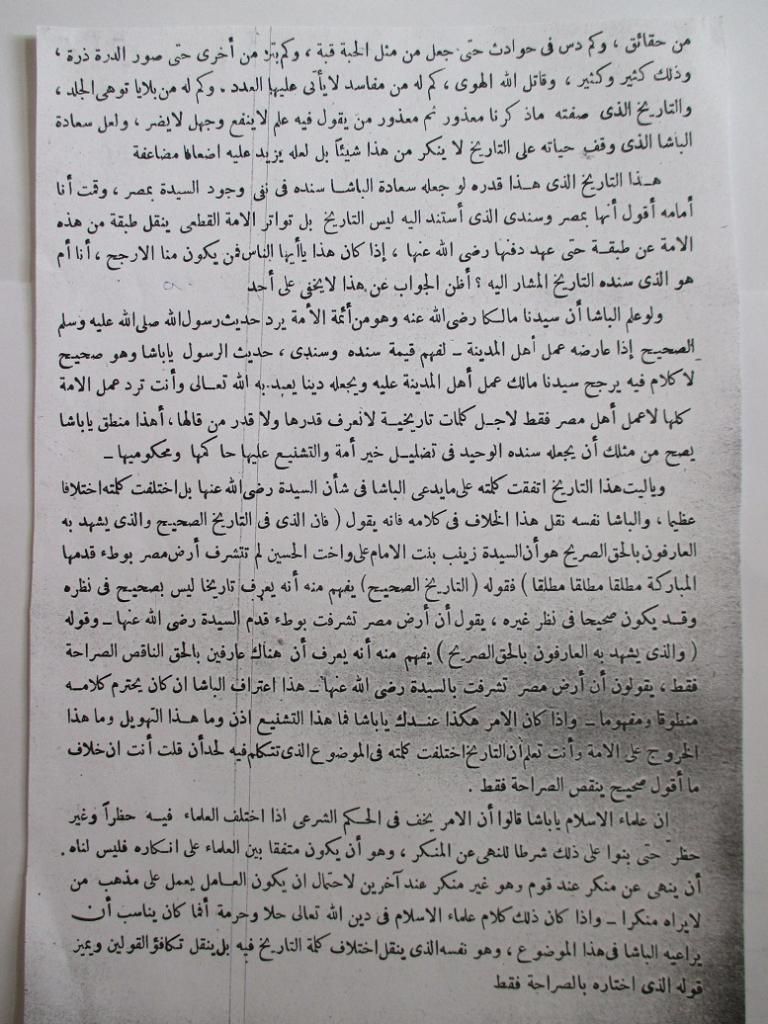 من حقائق ، وكم دس فى حوادث حتى جعل من مثل الحبة قبة ، وكم بتر من أخرى حتى صور الدرة ذرة ،
وذلك كثير وكثير ، وقاتل الله الهوى ، كم له من مفاسد لا يأتى عليها العدد . وكم له من بلايا توهى الجلد ،
والتاريخ الذى صفته ماذكرنا معذور ثم معذور من يقول فيه علم لا ينفع وجهل لا يضر ، ولعل سعادة
الباشا الذى وقف حياته على التاريخ لا ينكر من هذا شيئاً بل لعله يزيد عليه اضعافا مضاعفة
هــذا التاريخ الذى هــذا قدره لو جعله سعادة الباشا سنده فى نفى وجود السيدة بمصر ، وقمت أنا
أمامه أقول أنها بمصر وسندى الذى أستند اليه ليس التاريخ بل تواتر الامة القطعى ينقل طبقة من هذه
الامة عن طبقــة حتى عهد دفنها رضى الله عنها ، إذا كان هذا ياأيها الناس فمن يكون منا الارجح ، أنا أم
هو الذى سنده التاريخ المشار اليه ؟ أظن الجواب عن هذا لا يخفى على أحد
ولو علم الباشا أن سيدنا مالـكا رضى الله عنه وهو من أئمة الأمة يرد حديث رسول الله صلى الله عليه وسلم
الصحيح إذا عارضه عمل أهل المدينة ــ لفهم قيمة سنده وسندى ، حديث الرسول ياباشا وهو صحيح
لا كلام فيه يرجح سيدنا مالك عمل أهل المدينة عليه ويجعله دينا يعبد به الله تعــالى وأنت ترد عمل الامة
كلها لا عمل أهل مصر فقط لاجــل كلمات تاريخيــة لا نعرف قدرها ولا قدر من قالها ، أهذا منطق ياباشا
يصح من مثلك أن يجعله سنده الوحيد فى تضليــل خير أمة والتشنيع عليها حاكمها ومحكوميها ــ
وياليت هذا التاريخ اتفقت كلمته على مايدعى الباشا فى شأن السيدة رضى الله عنها بل اختلفت كلمته اختلافا
عظيما ، والباشا نفسه نقل هذا الخلاف فى كلامه فانه يقول ( فان الذى فى التاريخ الصحيح والذى يشهد به
العارفون بالحق الصريح هو أن السيدة زينب بنت الامام على واخت الحسين لم تتشرف أرض مصر بوطء قدمها
المباركة مطلقا مطلقا مطلقا ) فقوله ( التاريخ الصحيح ) يفهم منه أنه يعرف تاريخا ليس بصحيح فى نظره
وقــد يكون صحيحا فى نظر غيره ، يقول أن أرض مصر تشرفت بوطء قدم السيدة رضى الله عنها ــ وقوله
( والذى يشهد به العارفون بالحق الصريح ) يفهم منه أنه يعرف أن هناك عارفين بالحق الناقص الصراحة
فقط ، يقولون أن أرض مصر تشرفت بالسيدة رضى الله عنها ــ هذا اعتراف الباشا ان كان يحترم كلامــه
منطوقا ومفهوما ــ واذا كان الامر هكذا عنــدك ياباشا فما هذا التشنيع اذن وما هــذا التهويل وما هذا
الخروج على الامة وأنت تعلم أن التاريخ اختلفت كلمته فى الموضوع الذى تتكلم فيه لحد أن قلت أنت ان خلاف
ما أقول صحيح ينقص الصراحة فقط .
ان علماء الاسلام ياباشا قالوا أن الامر يخف فى الحــكم الشرعى اذا اختلف العلماء فيــه حظراً وغير
حظر حتى بنوا على ذلك شرطا للنهى عن المنـكر ، وهو أن يكون متفقا بين العلماء على انـكاره فليس لنا
أن ينهى عن منكر عند قوم وهو غير منكر عند آخرين لاحتمال ان يكون العــامل يعمل على مذهب من
لا يراه منكرا ــ واذا كان ذلك كلام علماء الاسلام فى دين الله تعالى حلا وحرمة أفما كان يناسب أن
يراعيه الباشا فى هذا الموضوع ، وهو نفسه الذى ينقل اختلاف كلمة التاريخ فيه بل ينقل تـكافؤ القولين ويميز
قوله الذى اختاره بالصراحة فقط